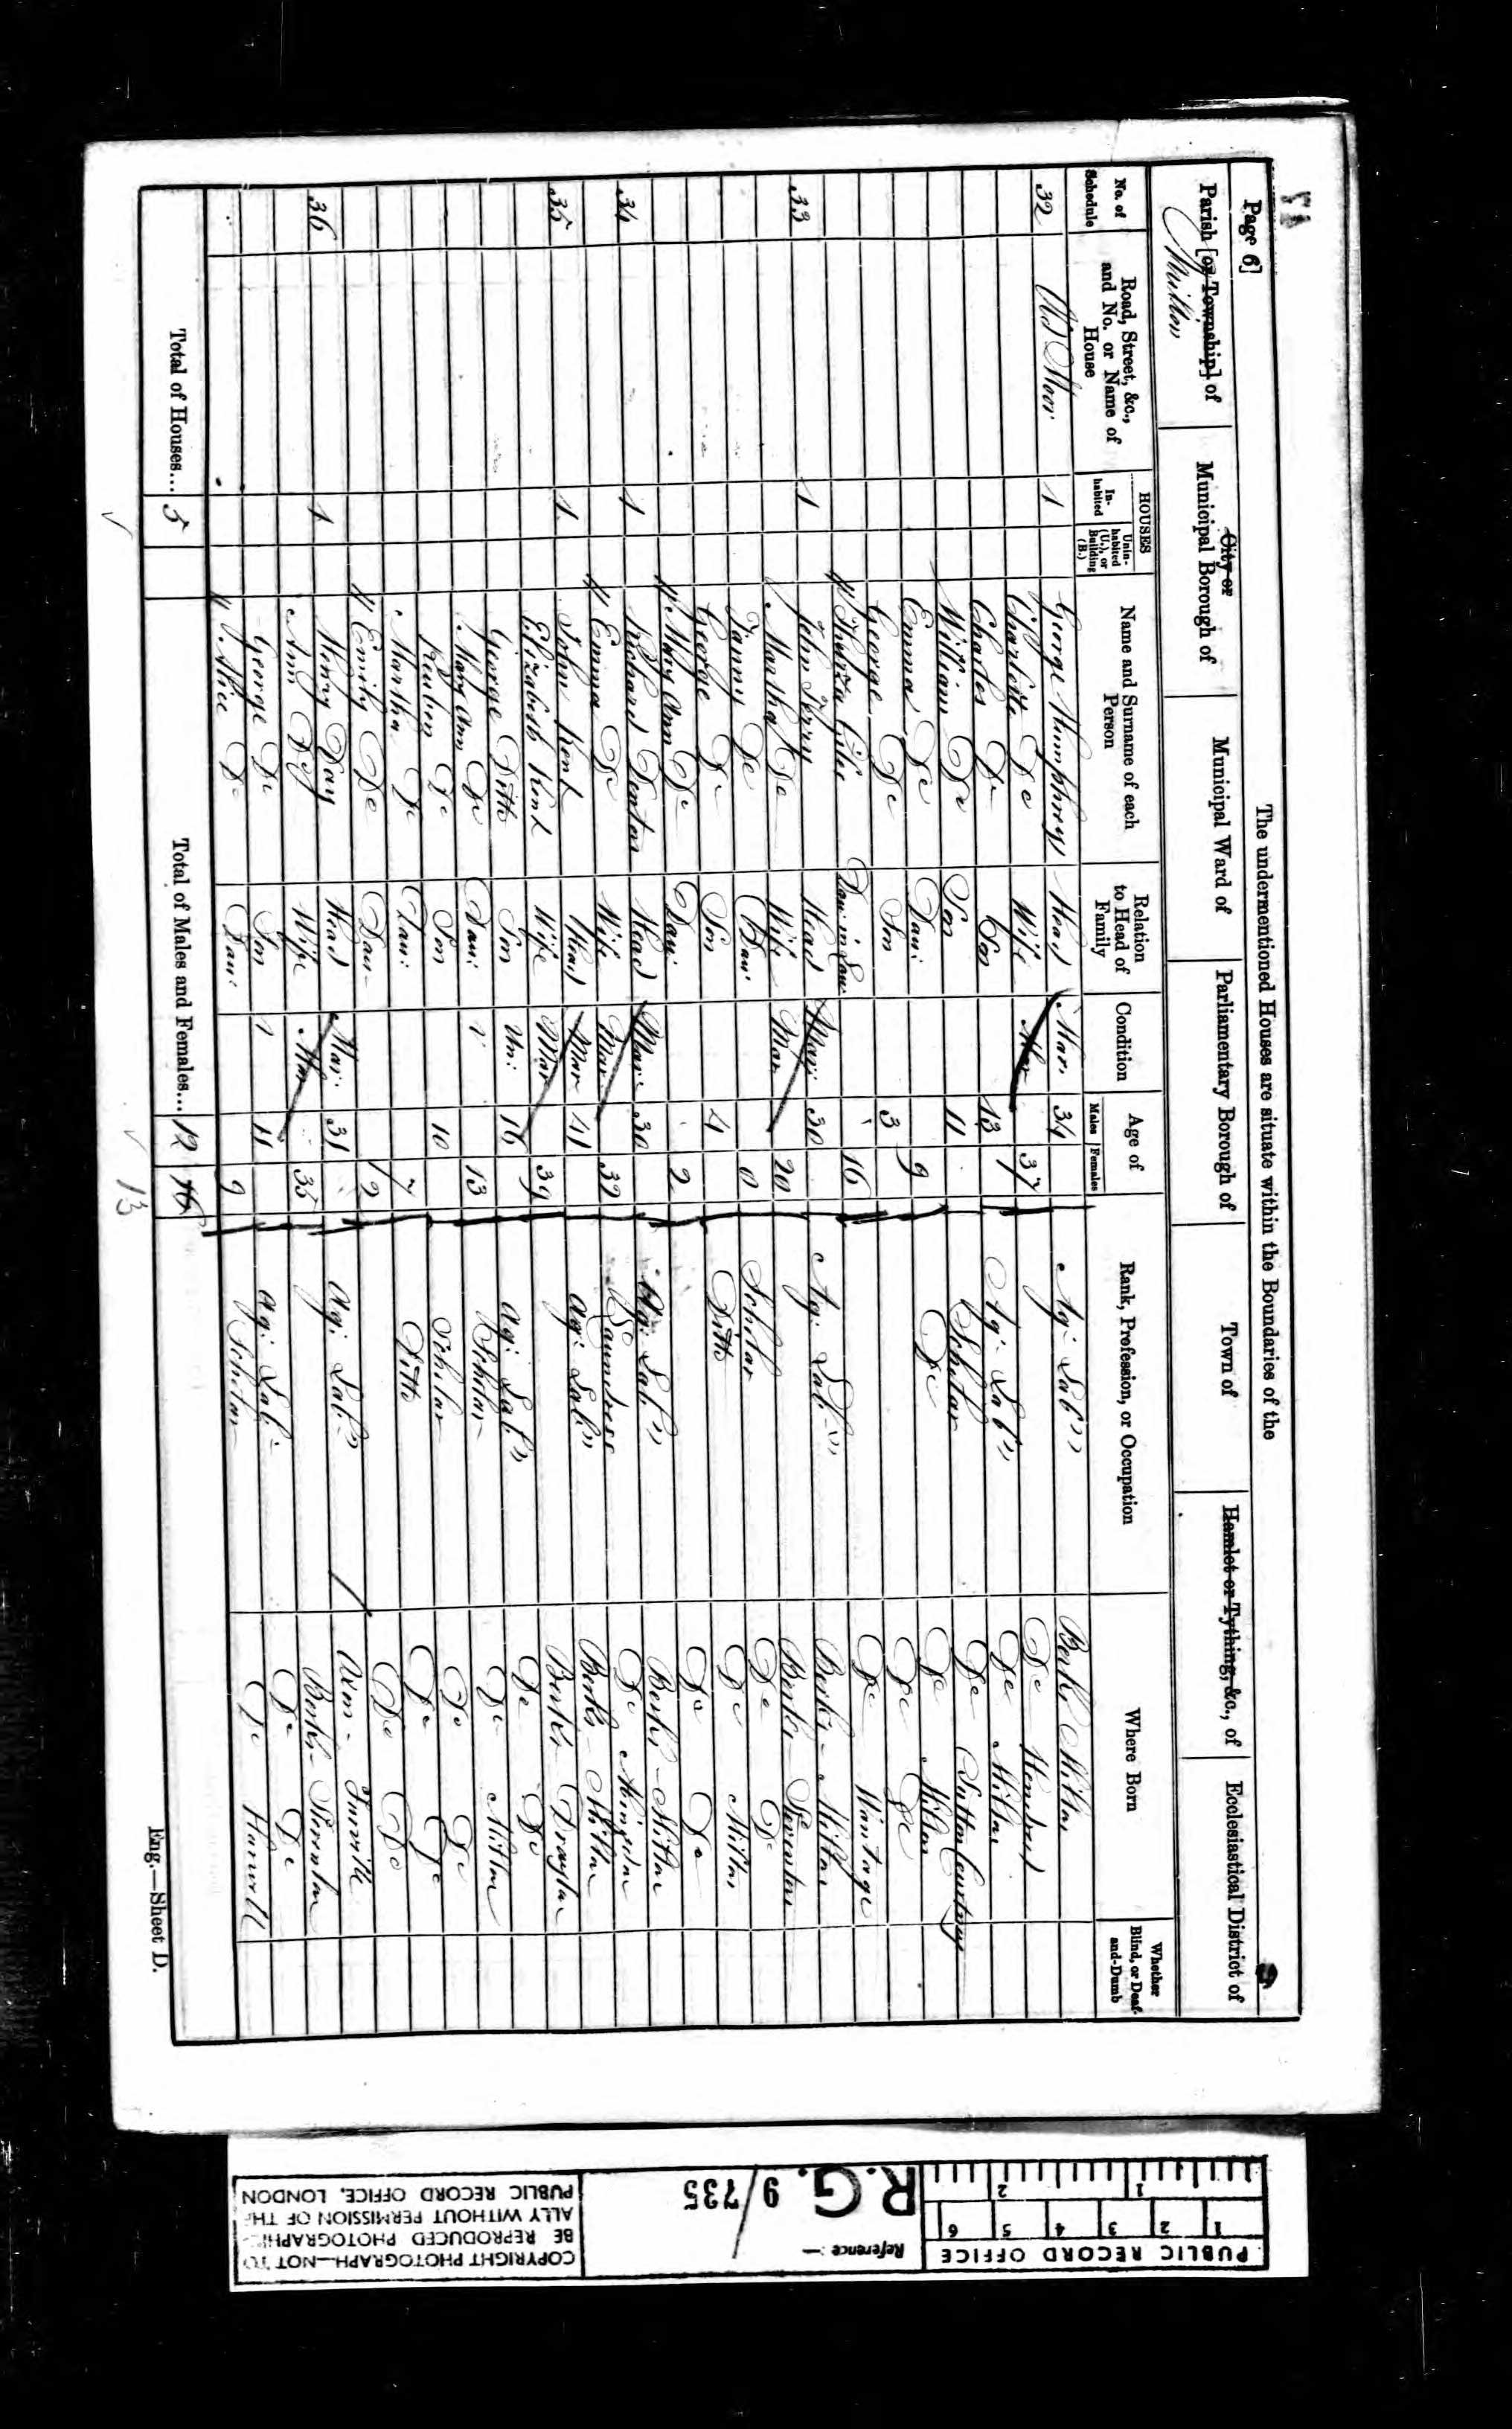 The undermentioned Houses are situate within the Boundaries of the
Page 6]
Parish [or Township] of
Milton
City or
Municipal Borough of
Municipal Ward of
Parliamentary Borough of
Town of
Hamlet or Tything, &c., of
Ecclesiastical District of
No. of Schedule
Road, Street, &c., and No. or Name of House
HOUSES
Inhabited
Uninhabited (U.), or Building (B.)
Name and Surname of each Person
Relation to Head of Family
Condition
Age of
Males
Females
Rank, Profession, or Occupation
Where Born
Whether Blind, or Deaf-and-Dumb
32 Old Moor 1 George Humphreys Head Mar. 34 Ag: Lab" Berks Milton
Charlotte Do Wife Mar 37 Do Hendred
Charles Do Son 13 Ag: Lab" Do Milton
William Do Son 11 Scholar Do Sutton Courtney
Emma Do Dau: 9 Do Do Milton
George Do Son 3 Do Do
Thurza Dau: in Law 16 Do Wantage
33 1 John Terry Head Mar: 30 Ag: Lab" Berks - Milton
Martha Do Wife Mar 20 Berks - Steventon
Fanny Do Dau: Scholar Do Do
George Do Son 4 Ditto Do Milton
Mary Ann Do Dau: 2 Do Do
34 1 Richard Denton Head Mar: 30 Ag: Lab" Berks - Milton
Emma Do Wife Mar 32 Laundress Do Abingdon
35 1 John Kent Head Mar 41 Ag: Lab" Berks - Milton
Elizabeth Kent Wife Mar 39 Berks - Drayton
George Ditto Son Un: 16 Ag: Lab" Do Do
Mary Ann Do Dau: 13 Scholar Do Milton
Reuben Do Son 10 Scholar Do Do
Martha Do Dau: 7 Ditto Do Do
Emily Do Dau 2 Do Do
36 1 Henry Day Head Mar: 31 Ag: Lab"
Ann Do Wife Mar 35 Berks - Steventon
George Do Son 11 Ag: Lab: Do Do
Alice Do Dau: 9 Scholar Do Harwell
Total of Houses... 5
Total of Males and Females... 12
13
Eng.—Sheet D.
PUBLIC RECORD OFFICE
1 2 3 4 5 6
1 2
Reference :—
R.G. 9/735
COPYRIGHT PHOTOGRAPH—NOT TO
BE REPRODUCED PHOTOGRAPHIC-
ALLY WITHOUT PERMISSION OF THE
PUBLIC RECORD OFFICE, LONDON